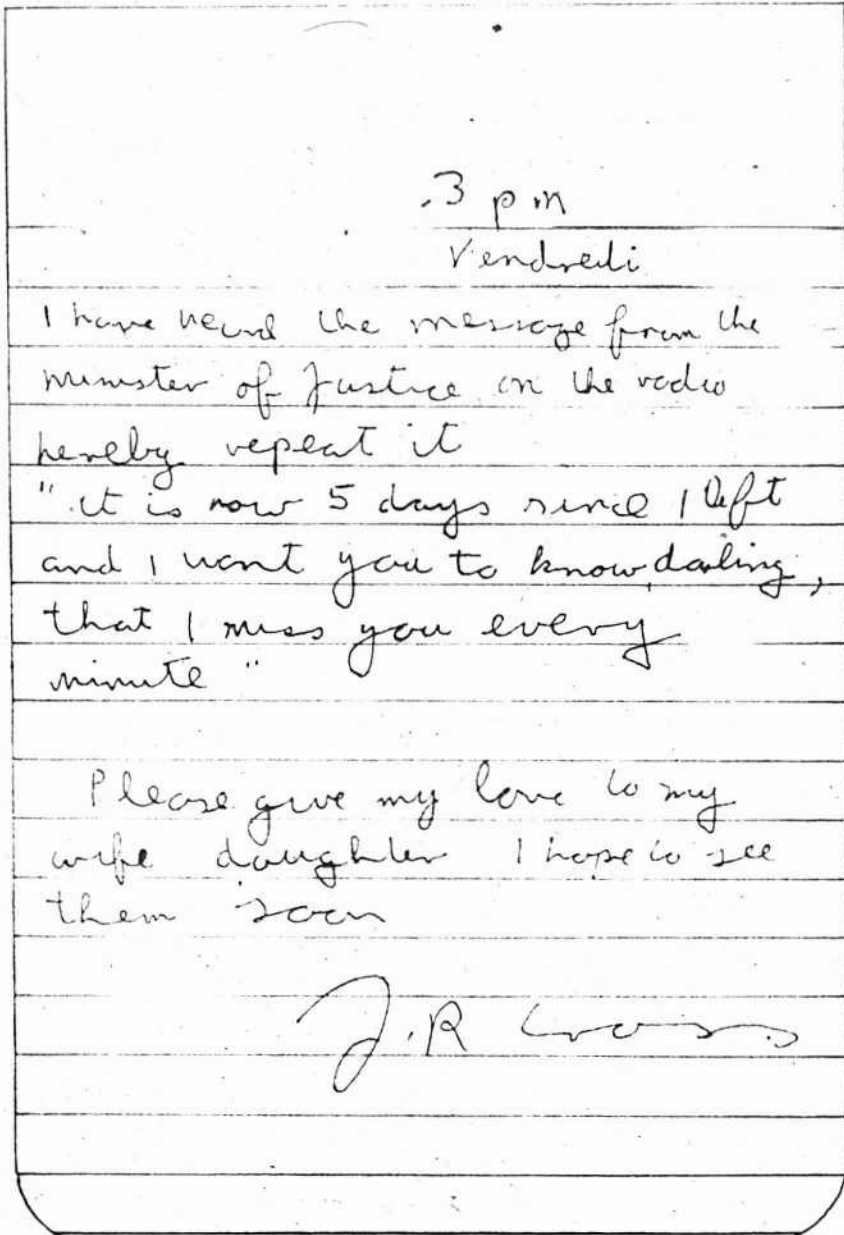 3 pm
Vendredi
I have heard the message from the
minister of Justice on the radio
hereby repeat it
"it is now 5 days since I left
and I want you to know darling,
that I miss you every
minute"
Please give my love to my
wife daughter I hope to see
them soon
J.R Cross